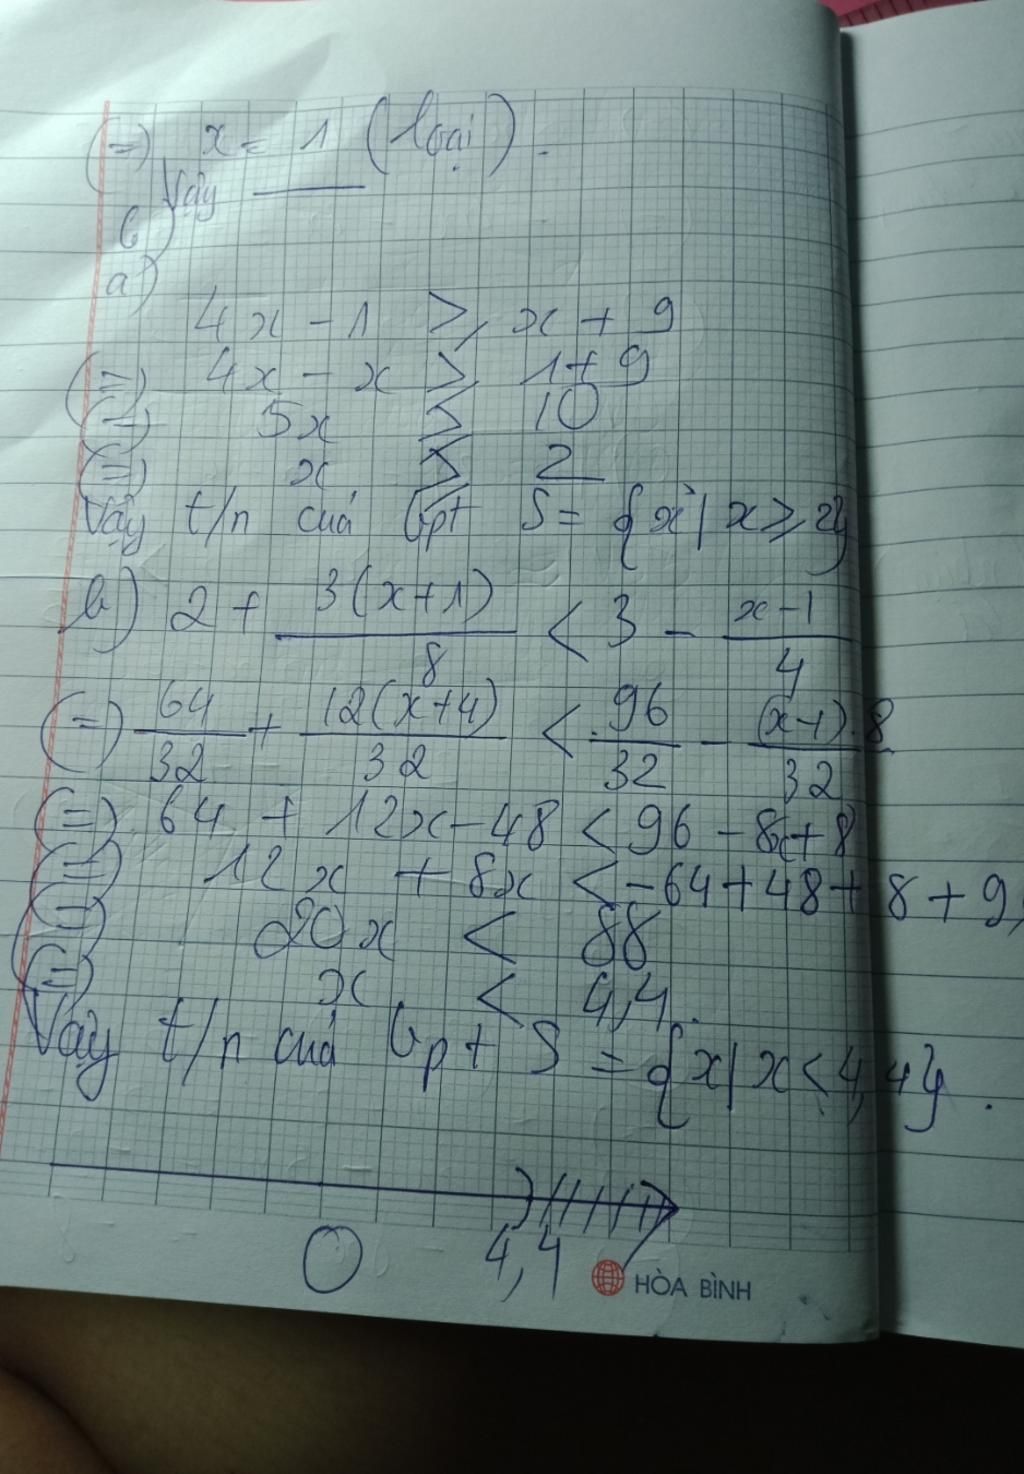 (=) x = 1 (loại).
Vậy ———
6)
a)
4x - 1 ≥ x + 9
(=) 4x - x ≥ 1 + 9
(=) 5x ≥ 10
(=) x ≥ 2
Vậy t/n của bpt S = {x | x ≥ 2}
b) 2 + 3(x+1)/8 < 3 - x-1/4
(=) 64/32 + 12(x+4)/32 < 96/32 - (x-1).8/32
(=) 64 + 12x - 48 < 96 - 8x + 8
(=) 12x + 8x < -64 + 48 + 8 + 9
(=) 20x < 88
(=) x < 4,4.
Vậy t/n của bpt S = {x | x < 4,4}.
0 4,4
HÒA BÌNH